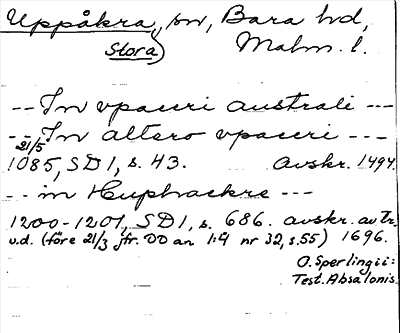 Uppåkra, sn, Bara hd,
Stora) Malm. l.
-- In vpaceri australi ---
-- In altero vpaceri ---
21/5
1085, SD 1, s. 43. Avskr. 1494.
-- in Huphackre ---
1200-1201, SD 1, s. 686. avskr. av tr.
u.d. (före 21/3 jfr. DD an 1:4 nr 32, s.55) 1696.
O. Sperlingii:
Test. Absalonis